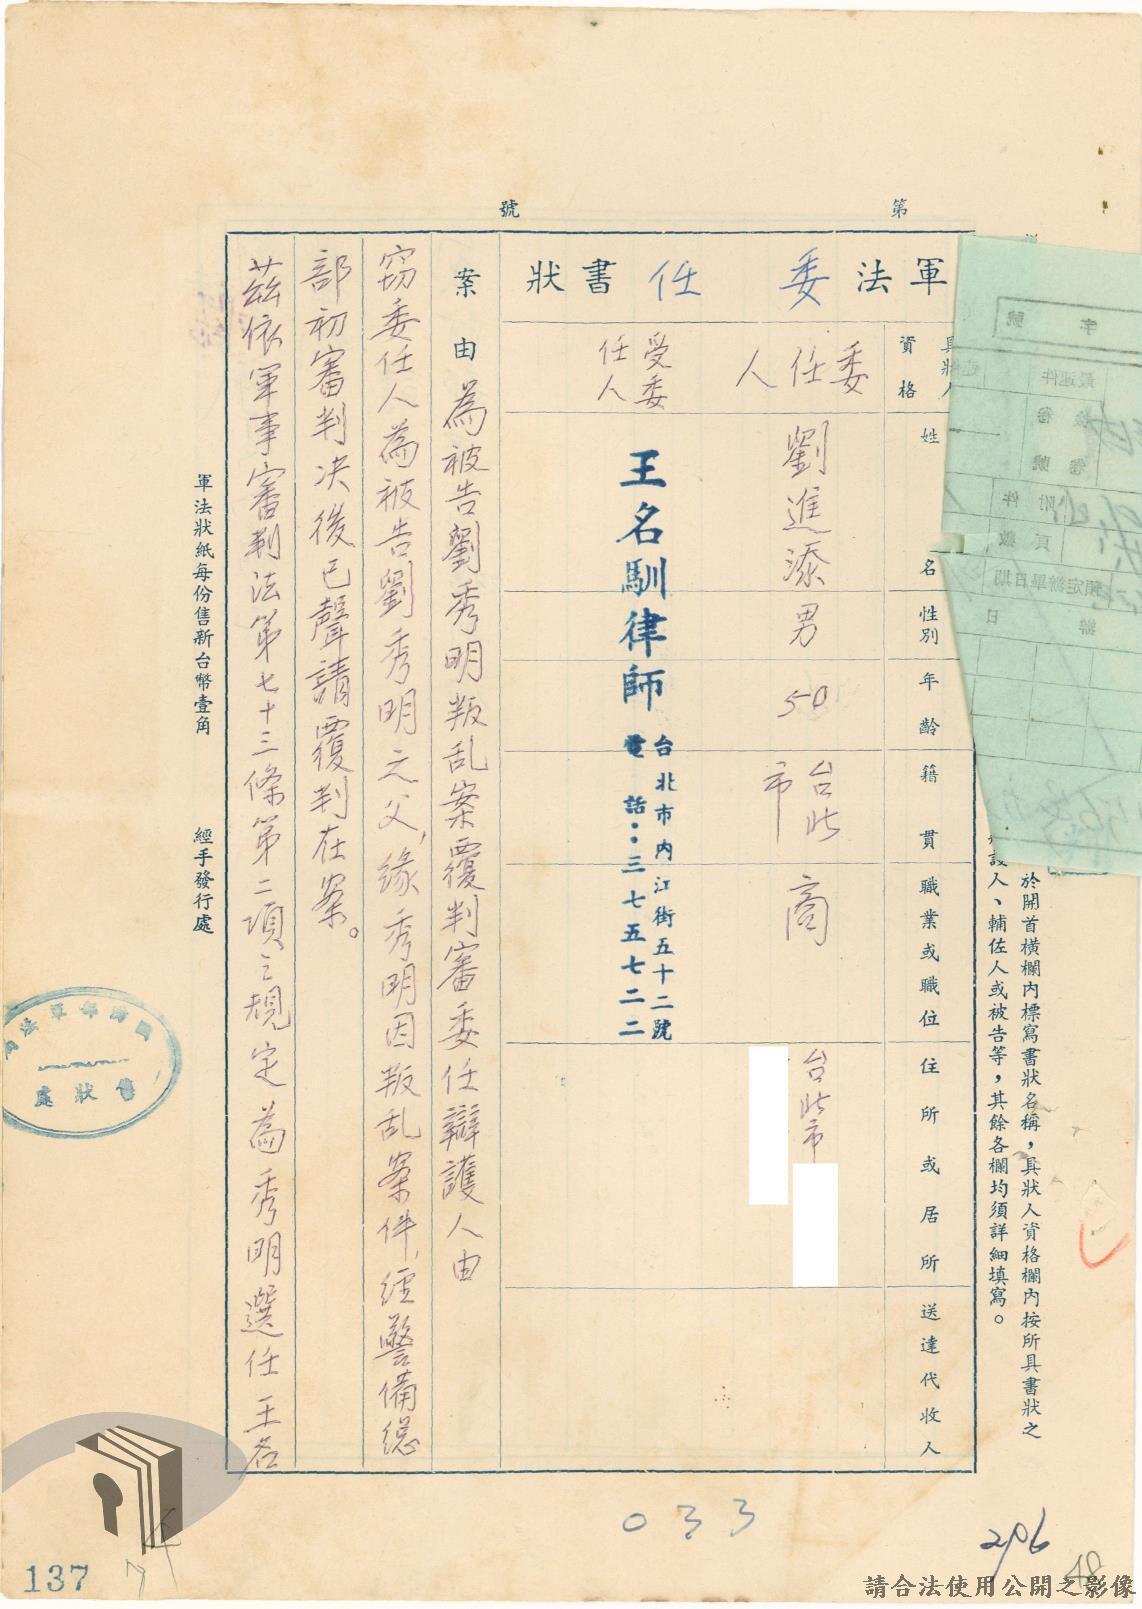 第
號
軍法委任書狀
具狀人資格
姓名
性別
年齡
籍貫
職業或職位
住所或居所
送達代收人
委任人
劉進添
男
50
台北市
商
台北市
受委任人
王名馴律師
台北市內江街五十二號
電話：三七五七二二
案由
為被告劉秀明叛乱案覆判審委任辯護人由
窃委任人為被告劉秀明之父，緣秀明因叛乱案件，經警備總
部初審判决後已聲請覆判在案。
茲依軍事審判法第七十三條第二項之規定為秀明選任王名
軍法狀紙每份售新台幣壹角
經手發行處
於開首橫欄內標寫書狀名稱，具狀人資格欄內按所具書狀之
人、輔佐人或被告等，其餘各欄均須詳細填寫。
售狀處
字
號
最速件
檢卷
卷號
附件
頁數
預定辦畢日期
日
033
206
48
137
請合法使用公開之影像